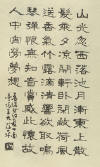 山光忽西落池月漸東上散
髮乘夕涼開軒臥閑敞荷風
送香氣竹露滴清響欲取鳴
琴彈恨無知音賞感此懷故
人中宵勞夢想